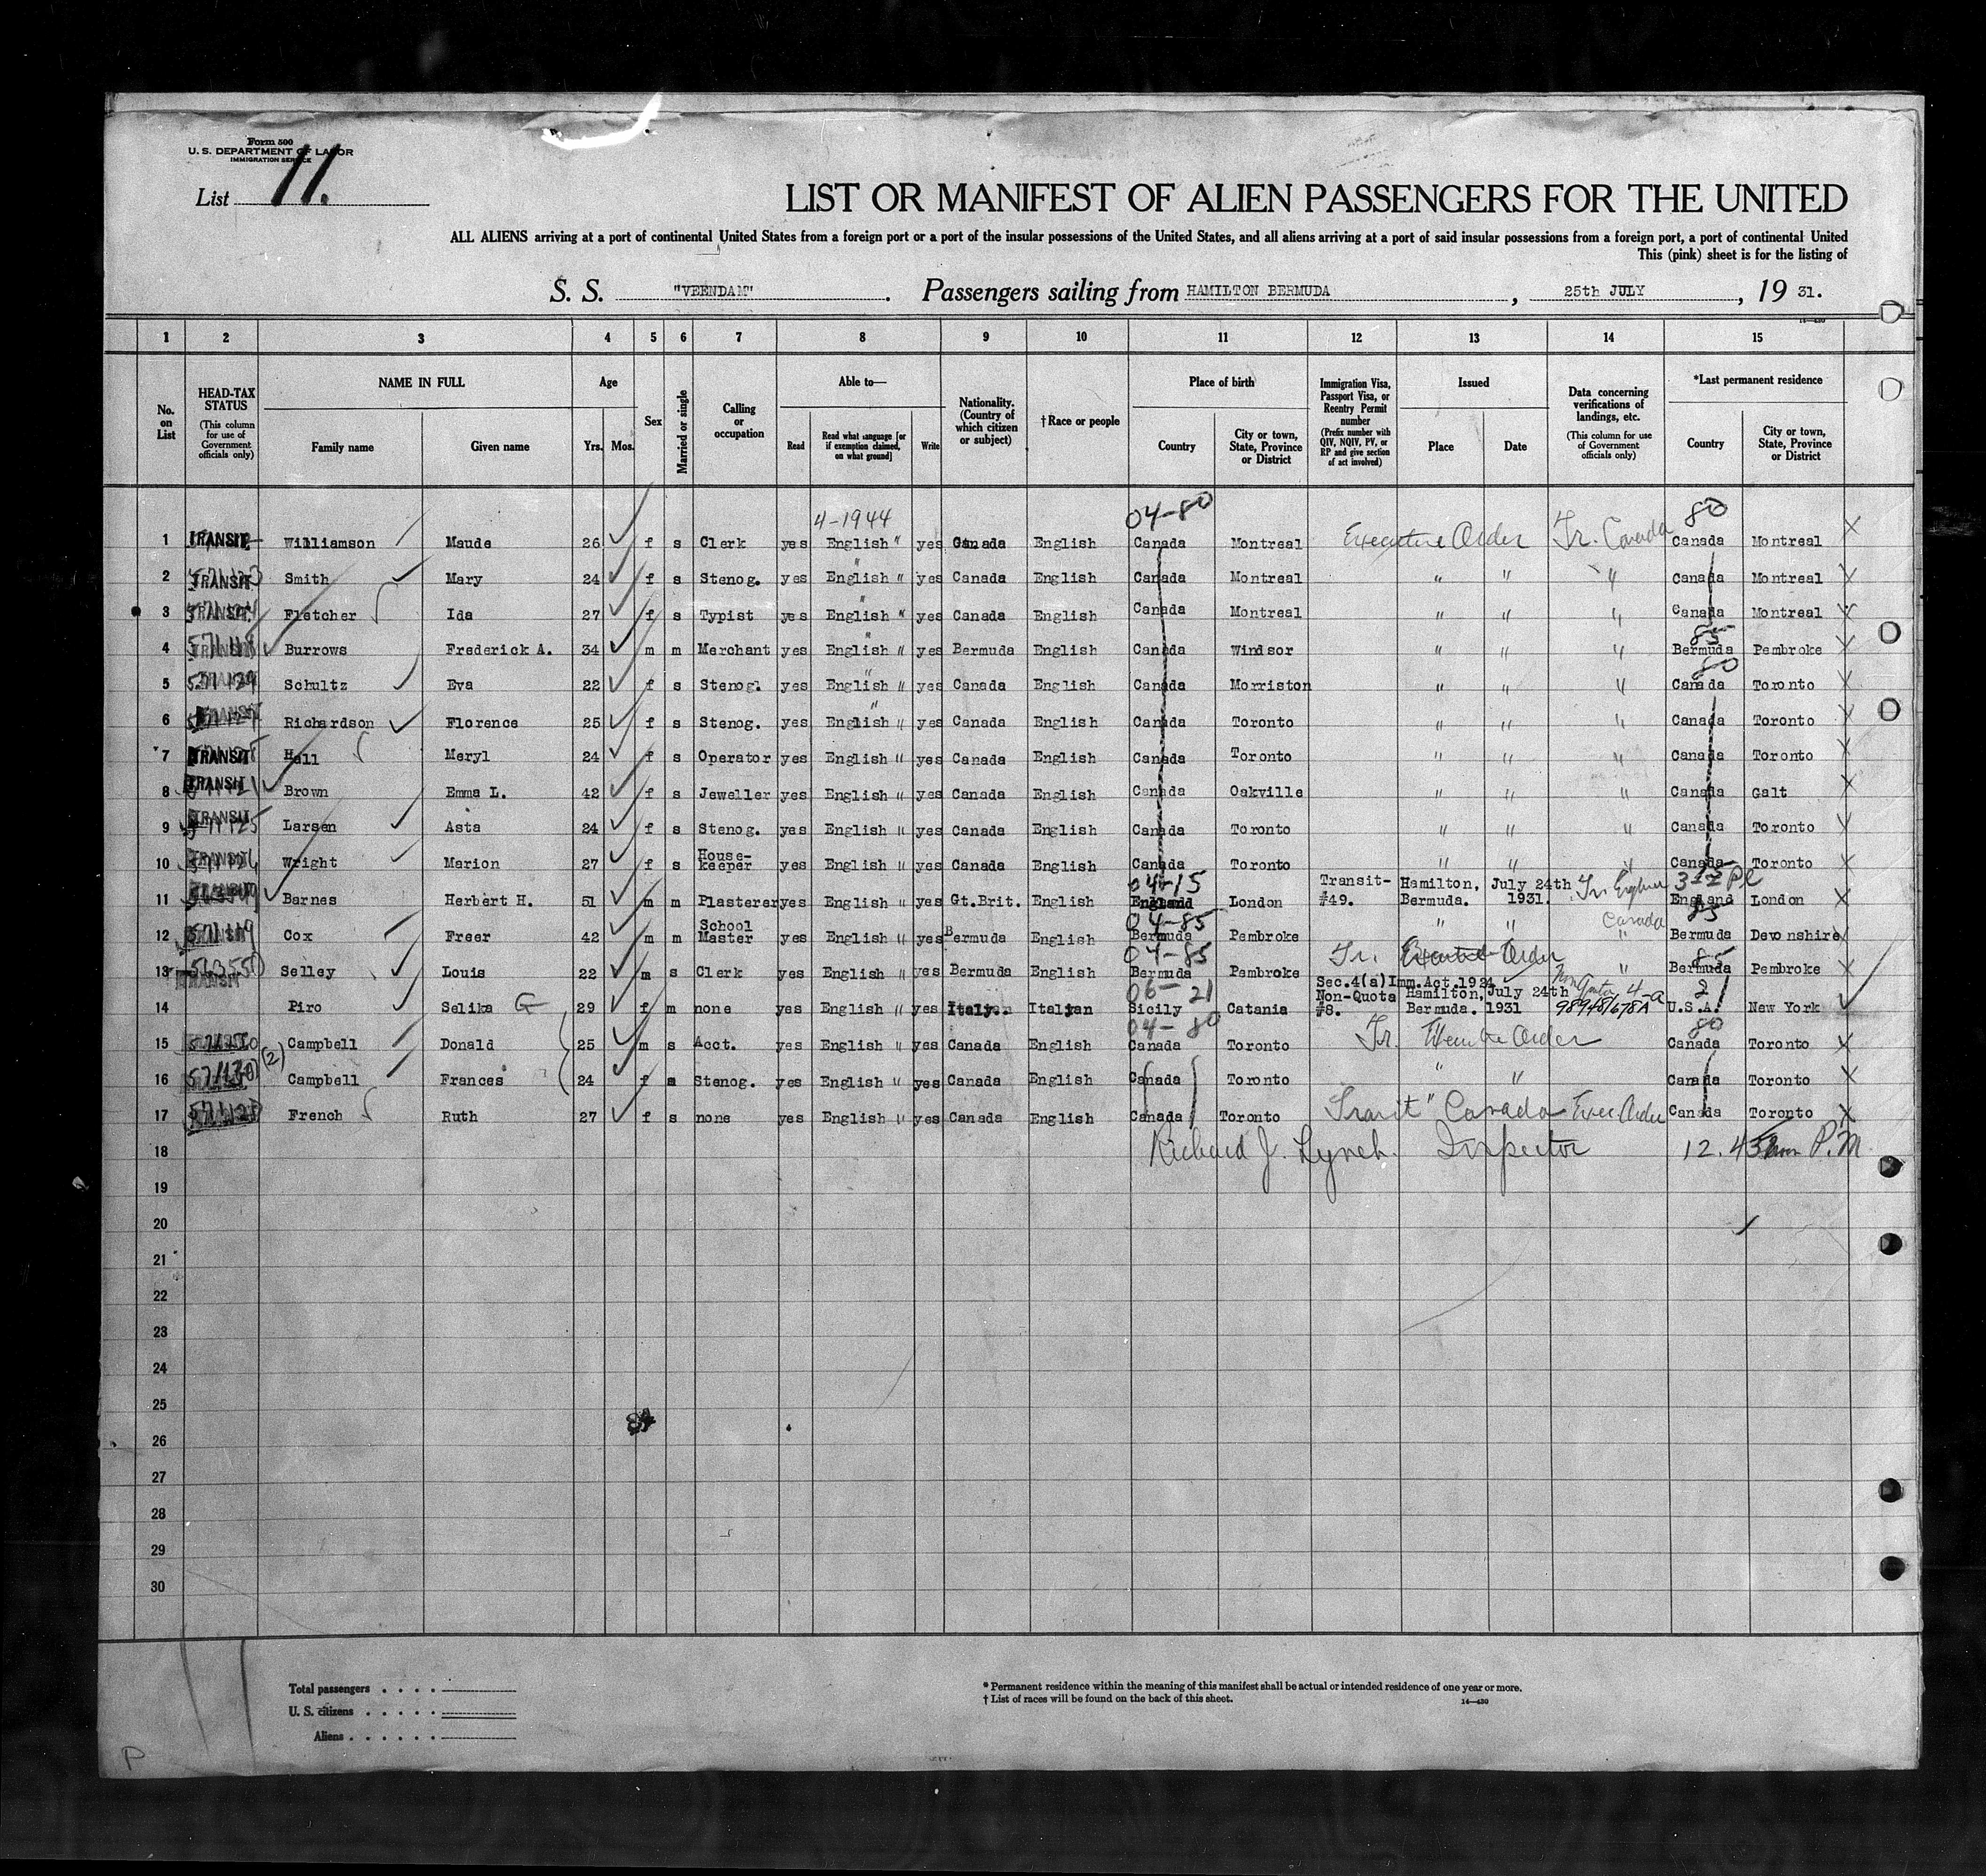 Form 500
U. S. DEPARTMENT OF LABOR
IMMIGRATION SERVICE
List 11.
LIST OR MANIFEST OF ALIEN PASSENGERS FOR THE UNITED
ALL ALIENS arriving at a port of continental United States from a foreign port or a port of the insular possessions of the United States, and all aliens arriving at a port of said insular possessions from a foreign port, a port of continental United
This (pink) sheet is for the listing of
S. S. "VEENDAM". Passengers sailing from HAMILTON BERMUDA, 25th JULY, 19 31.
14—430
1 2 3 4 5 6 7 8 9 10 11 12 13 14 15
No. on List
HEAD-TAX STATUS (This column for use of Government officials only)
NAME IN FULL Family name Given name
Age Yrs. Mos.
Sex
Married or single
Calling or occupation
Able to— Read Read what language [or if exemption claimed, on what ground] Write
Nationality. (Country of which citizen or subject)
†Race or people
Place of birth Country City or town, State, Province or District
Immigration Visa, Passport Visa, or Reentry Permit number (Prefix number with QIV, NQIV, PV, or RP and give section of act involved)
Issued Place Date
Data concerning verifications of landings, etc. (This column for use of Government officials only)
*Last permanent residence Country City or town, State, Province or District
4-1944 04-80 80
1 TRANSIT Williamson Maude 26 f s Clerk yes English " yes Canada English Canada Montreal Executive Order Tr. Canada Canada Montreal X
2 TRANSIT Smith Mary 24 f s Stenog. yes English " yes Canada English Canada Montreal " " " Canada Montreal X
3 TRANSIT Fletcher Ida 27 f s Typist yes English " yes Canada English Canada Montreal " " " Canada Montreal X
85
4 TRANSIT Burrows Frederick A. 34 m m Merchant yes English " yes Bermuda English Canada Windsor " " " Bermuda Pembroke X
80
5 Schultz Eva 22 f s Stenog. yes English " yes Canada English Canada Morriston " " " Canada Toronto X
6 TRANSIT Richardson Florence 25 f s Stenog. yes English " yes Canada English Canada Toronto " " " Canada Toronto X
7 TRANSIT Hall Meryl 24 f s Operator yes English " yes Canada English Canada Toronto " " " Canada Toronto X
8 TRANSIT Brown Emma L. 42 f s Jeweller yes English " yes Canada English Canada Oakville " " " Canada Galt X
9 TRANSIT Larsen Asta 24 f s Stenog. yes English " yes Canada English Canada Toronto " " " Canada Toronto X
10 TRANSIT Wright Marion 27 f s House-keeper yes English " yes Canada English Canada Toronto " " " Canada Toronto X
04-15
11 Barnes Herbert H. 51 m m Plasterer yes English " yes Gt.Brit. English England London Transit- #49. Hamilton, Bermuda. July 24th 1931. England London X
04-85 Canada 85
12 Cox Freer 42 m m School Master yes English " yes Bermuda English Bermuda Pembroke " " " Bermuda Devonshire
04-85 85
13 TRANSIT Selley Louis 22 m s Clerk yes English " yes Bermuda English Bermuda Pembroke Tr. Executive Order " Bermuda Pembroke X
06-21 Sec.4(a)Imm.Act.1924 2
14 Piro Selika G 29 f m none yes English " yes Italy. Italian Sicily Catania Non-Quota #8. Hamilton, Bermuda. July 24th 1931 U.S.A. New York
04-80 80
15 Campbell Donald 25 m s Acct. yes English " yes Canada English Canada Toronto Tr. Executive Order Canada Toronto X
16 (2) Campbell Frances 24 f s Stenog. yes English " yes Canada English Canada Toronto " " Canada Toronto X
17 French Ruth 27 f s none yes English " yes Canada English Canada Toronto Transit" Canada Exec Order Canada Toronto X
18 Richard J. Lynch. Inspector 12.45 P.M
19
20
21
22
23
24
25
26
27
28
29
30
Total passengers . . . .
U. S. citizens . . . . .
Aliens . . . . . .
* Permanent residence within the meaning of this manifest shall be actual or intended residence of one year or more.
† List of races will be found on the back of this sheet. 14—430
P